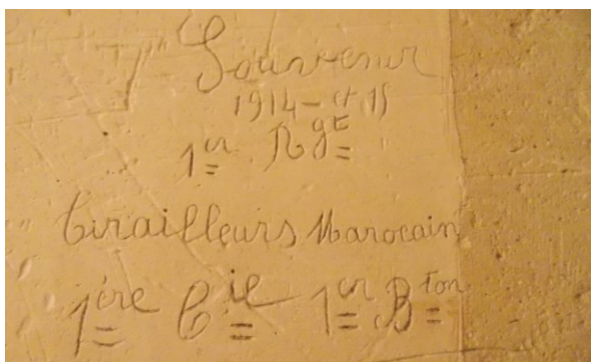 Souvenir
1914 - et 15
1er Rgt
Tirailleurs Marocain
1ère Cie 1er Bton